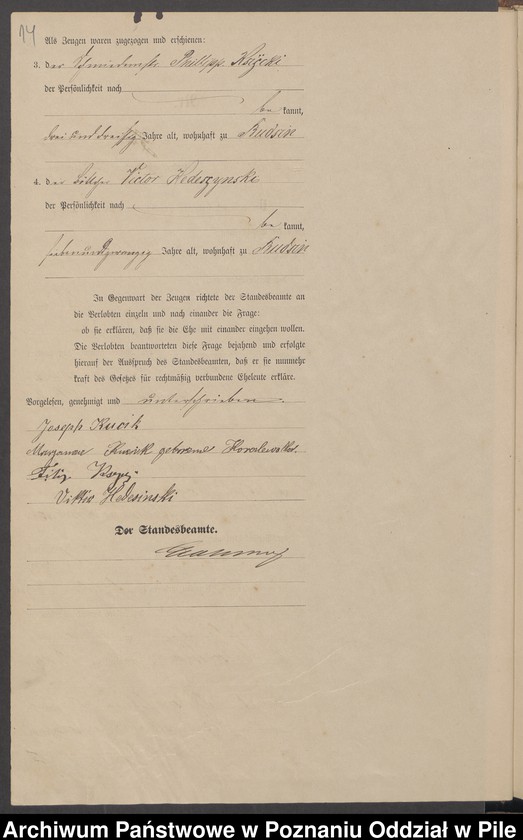 14
Als Zeugen waren zugezogen und erschienen:
3. der Schmiedemstr Philipp
der Persönlichkeit nach
be kannt,
drei und dreißig Jahre alt, wohnhaft zu Rudsin
4. der Böttcher Victor Hedeszynski
der Persönlichkeit nach
be kannt,
siebenundzwanzig Jahre alt, wohnhaft zu Rudsin
In Gegenwart der Zeugen richtete der Standesbeamte an
die Verlobten einzeln und nach einander die Frage:
ob sie erklären, daß sie die Ehe mit einander eingehen wollen.
Die Verlobten beantworteten diese Frage bejahend und erfolgte
hierauf der Ausspruch des Standesbeamten, daß er sie nunmehr
kraft des Gesetzes für rechtmäßig verbundene Eheleute erkläre.
Vorgelesen, genehmigt und unterschrieben.
Joseph Kucik
geborene
Viktor Hedesinski
Der Standesbeamte.
Archiwum Państwowe w Poznaniu Oddział w Pile